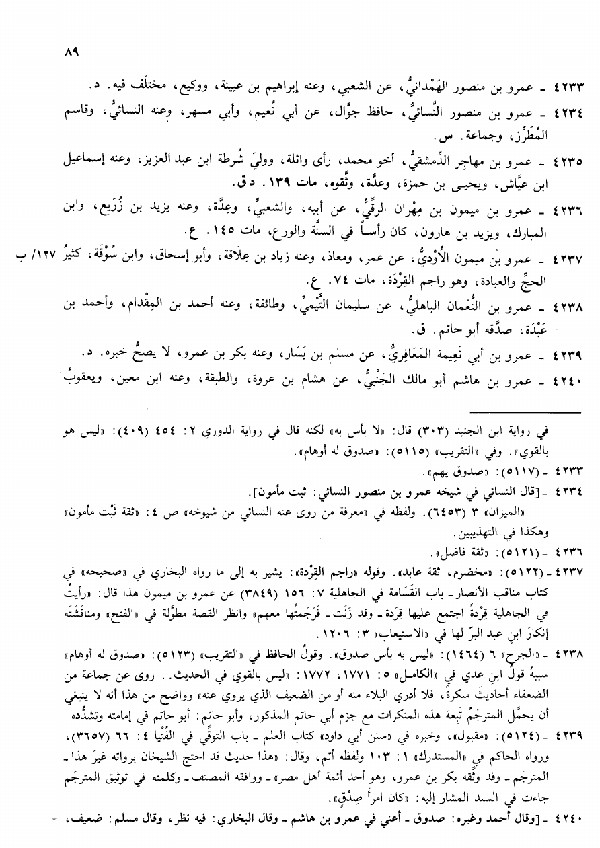 ٨٩
٤٢٣٣ ـ عمرو بن منصور الهَمْدانيُّ، عن الشعبي، وعنه إبراهيم بن عيينة، ووكيع، مختلَف فيه. د.
٤٢٣٤ ـ عمرو بن منصور النَّسائيُّ، حافظ جوَّال، عن أبي نُعيم، وأبي مسهر، وعنه النسائيُّ، وقاسم
المُطَرِّز، وجماعة. س.
٤٢٣٥ ـ عمرو بن مهاجر الدِّمشقيُّ، أخو محمد، رأى واثلة، ووليَ شُرطة ابن عبد العزيز، وعنه إسماعيل
ابن عيَّاش، ويحيى بن حمزة، وعدَّة، وثَّقوه، مات ١٣٩. د ق.
٤٢٣٦ ـ عمرو بن ميمون بن مِهْران الرقِّيُّ، عن أبيه، والشعبيِّ، وعِدَّة، وعنه يزيد بن زُرَيع، وابن
المبارك، ويزيد بن هارون، كان رأساً في السنَّة والورع، مات ١٤٥. ع.
٤٢٣٧ ـ عمرو بن ميمون الأَوْديُّ، عن عمر، ومعاذ، وعنه زياد بن عِلاقة، وأبو إسحاق، وابن سُوْقة، كثيرُ ١٢٧/ ب
الحجِّ والعبادة، وهو راجم القِرْدَة، مات ٧٤. ع.
٤٢٣٨ ـ عمرو بن النُّعمان الباهليُّ، عن سليمان التَّيْميِّ، وطائفة، وعنه أحمد بن المِقْدام، وأحمد بن
عَبْدَة، صدَّقه أبو حاتم. ق.
٤٢٣٩ ـ عمرو بن أبي نَعِيمة المَعَافِريُّ، عن مسلم بن يَسَار، وعنه بكر بن عمرو، لا يصحُّ خبره. د.
٤٢٤٠ ـ عمرو بن هاشم أبو مالك الجَنْبيُّ، عن هشام بن عروة، والطبقة، وعنه ابن معين، ويعقوبُ
في رواية ابن الجنيد (٣٠٣) قال: «لا بأس به» لكنه قال في رواية الدوري ٢: ٤٥٤ (٤٠٩): «ليس هو
بالقوي». وفي «التقريب» (٥١١٥): «صدوق له أوهام».
٤٢٣٣ ـ (٥١١٧): «صدوق يهم».
٤٢٣٤ ـ [قال النسائي في شيخه عمرو بن منصور النسائي: ثبت مأمون].
«الميزان» ٣ (٦٤٥٣). ولفظه في «معرفة من روى عنه النسائي من شيوخه» ص ٤: «ثقة ثبْت مأمون»
وهكذا في التهذيبين.
٤٢٣٦ ـ (٥١٢١): «ثقة فاضل».
٤٢٣٧ ـ (٥١٢٢): «مخضرم، ثقة عابد». وقوله «راجم القِرْدة»: يشير به إلى ما رواه البخاري في «صحيحه» في
كتاب مناقب الأنصار ـ باب القَسَامة في الجاهلية ٧: ١٥٦ (٣٨٤٩) عن عمرو بن ميمون هذا، قال: «رأيتُ
في الجاهلية قِرْدةً اجتمع عليها قِرَدة ـ وقد زَنَت ـ فَرَجَمتُها معهم» وانظر القصة مطوَّلة في «الفتح» ومناقَشَتَه
إنكارَ ابن عبد البرّ لها في «الاستيعاب» ٣: ١٢٠٦.
٤٢٣٨ ـ «الجرح» ٦ (١٤٦٤): «ليس به بأس صدوق». وقولُ الحافظ في «التقريب» (٥١٢٣): «صدوق له أوهام»
سببُه قولُ ابن عدي في «الكامل» ٥: ١٧٧١، ١٧٧٢: «ليس بالقوي في الحديث.. روى عن جماعة من
الضعفاء أحاديثَ منكرة، فلا أدري البلاء منه أو من الضعيف الذي يروي عنه» وواضح من هذا أنه لا ينبغي
أن يحمَّل المترجَمُ تَبِعة هذه المنكرات مع جزم أبي حاتم المذكور، وأبو حاتم: أبو حاتم في إمامته وتشدُّده.
٤٢٣٩ ـ (٥١٢٤): «مقبول»، وخبره في «سنن أبي داود» كتاب العلم ـ باب التوقّي في الفُتْيا ٤: ٦٦ (٣٦٥٧)،
ورواه الحاكم في «المستدرك» ١: ١٠٣ ولفظه أتم، وقال: «هذا حديث قد احتج الشيخان برواته غيرَ هذا ـ
المترجَم ـ وقد وثَّقه بكر بن عمرو، وهو أحد أئمة أهل مصر» ـ ووافقه المصنف ـ وكلمته في توثيق المترجَم
جاءت في السند المشار إليه: «كان امرأَ صِدْقٍ».
٤٢٤٠ ـ [وقال أحمد وغيره: صدوق ـ أعني في عمرو بن هاشم ـ وقال البخاري: فيه نظر، وقال مسلم: ضعيف،